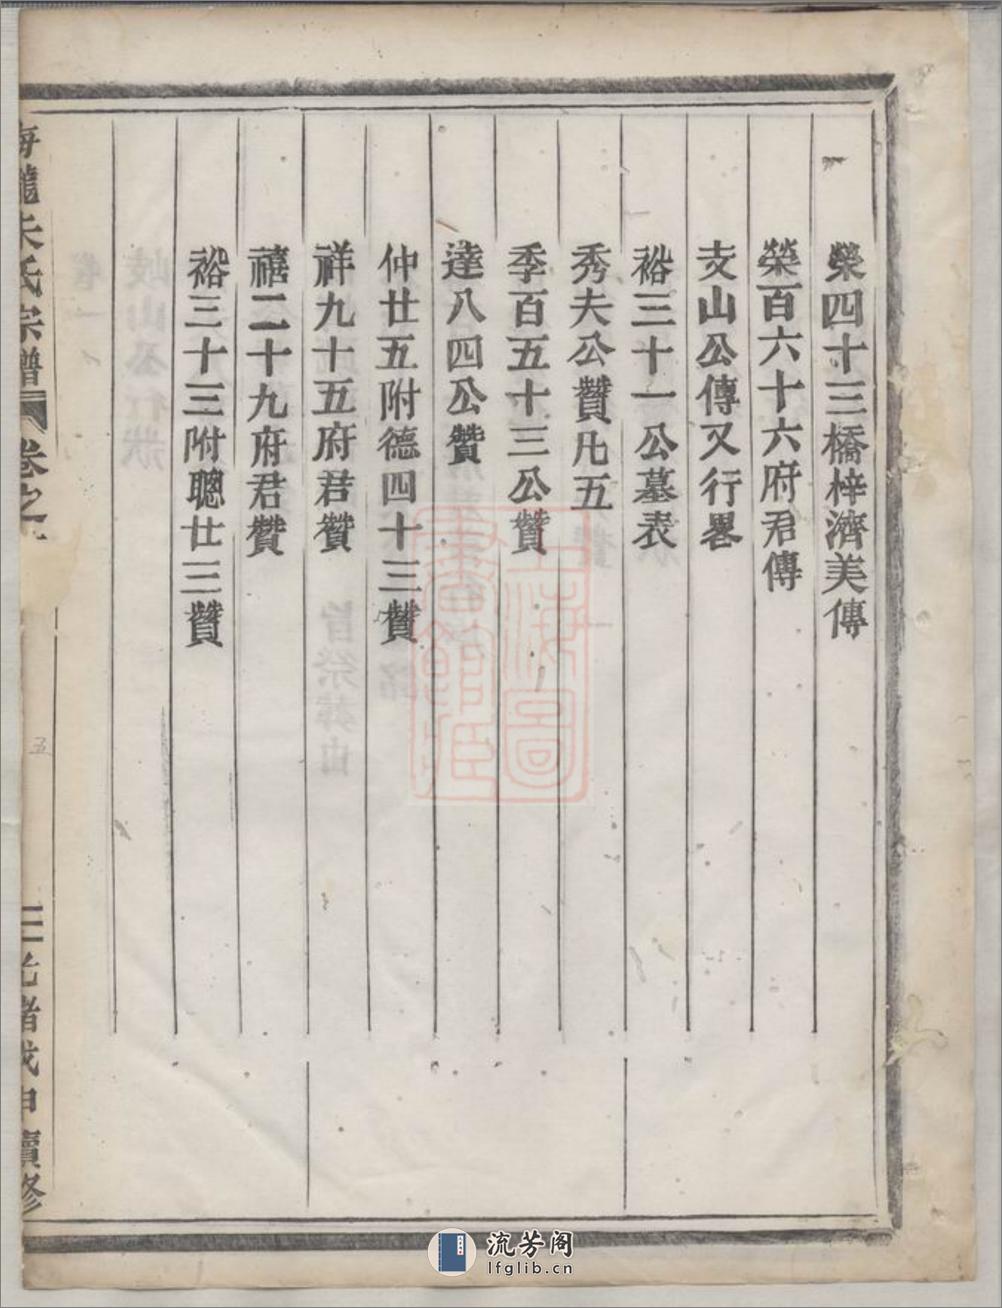 榮四十三橋梓濟美傳
榮百六十六府君傳
支山公傳又行畧
裕三十一公墓表
秀夫公贊凡五
季百五十三公贊
達八四公贊
仲廿五附德四十三贊
祥九十五府君贊
禧二十九府君贊
裕三十三附聰廿三贊
海龍朱氏宗譜 卷之
五
二 光緒戊申續修
上海圖書館藏
流芳阁
lfglib.cn